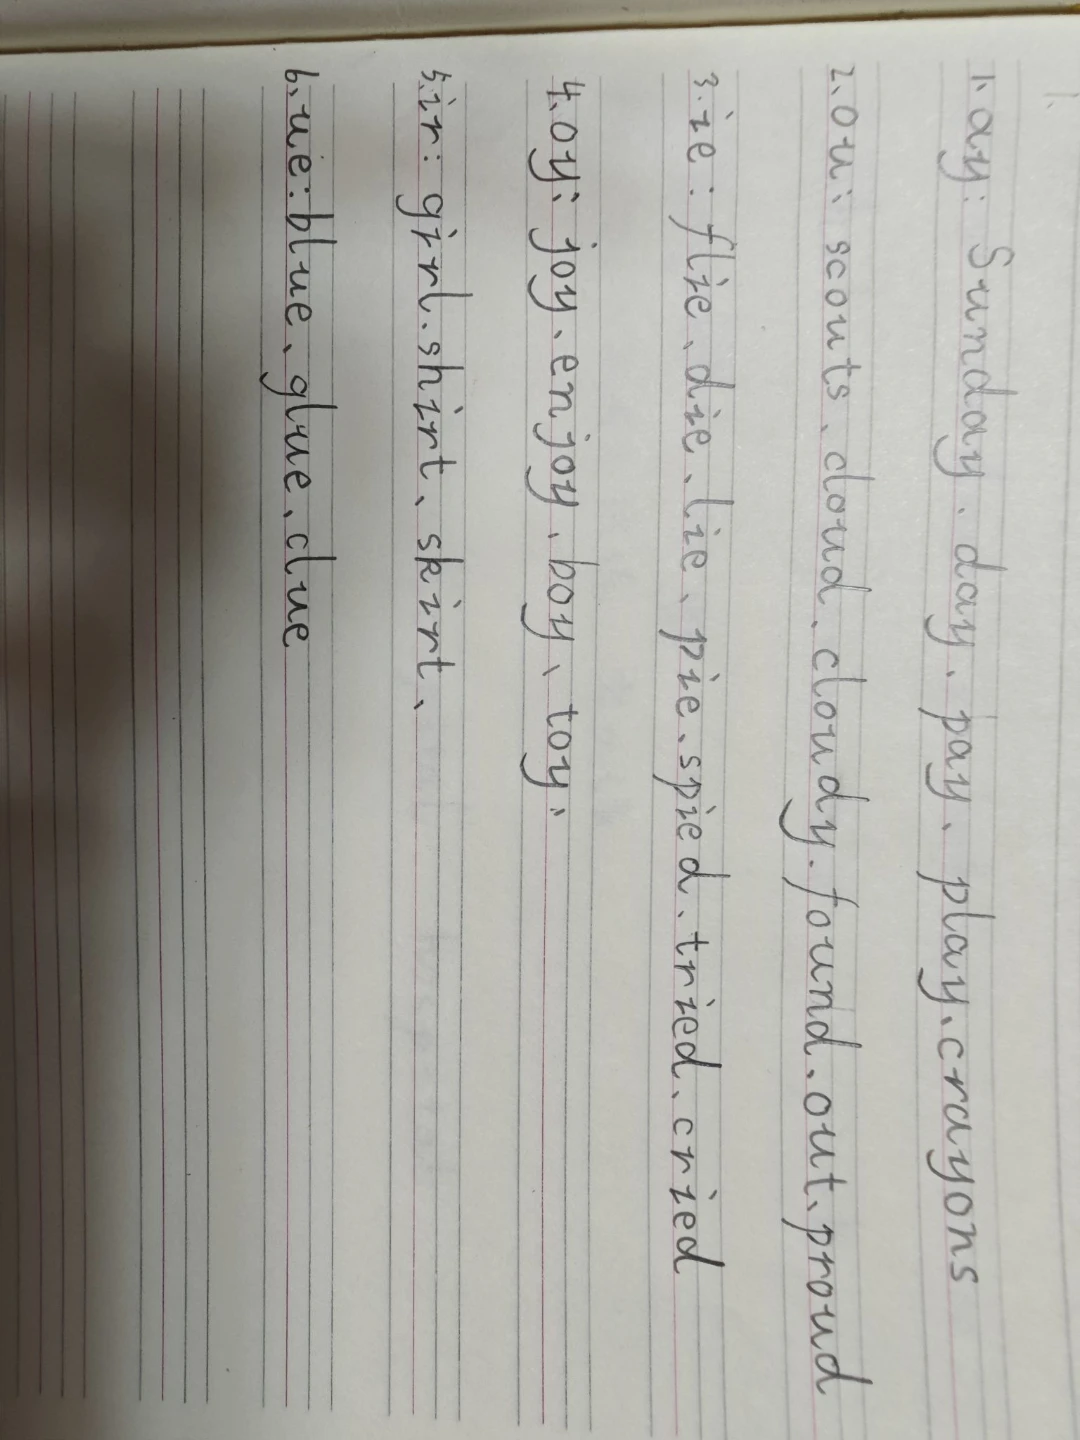 1.ay: Sunday、day、pay、play、crayons
2.ou: scouts、cloud、cloudy、found、out、proud
3.ie: flie、die、lie、pie、spied、tried、cried
4.oy: joy、enjoy、boy、toy、
5.ir: girl、shirt、skirt、
6.ue: blue、glue、clue